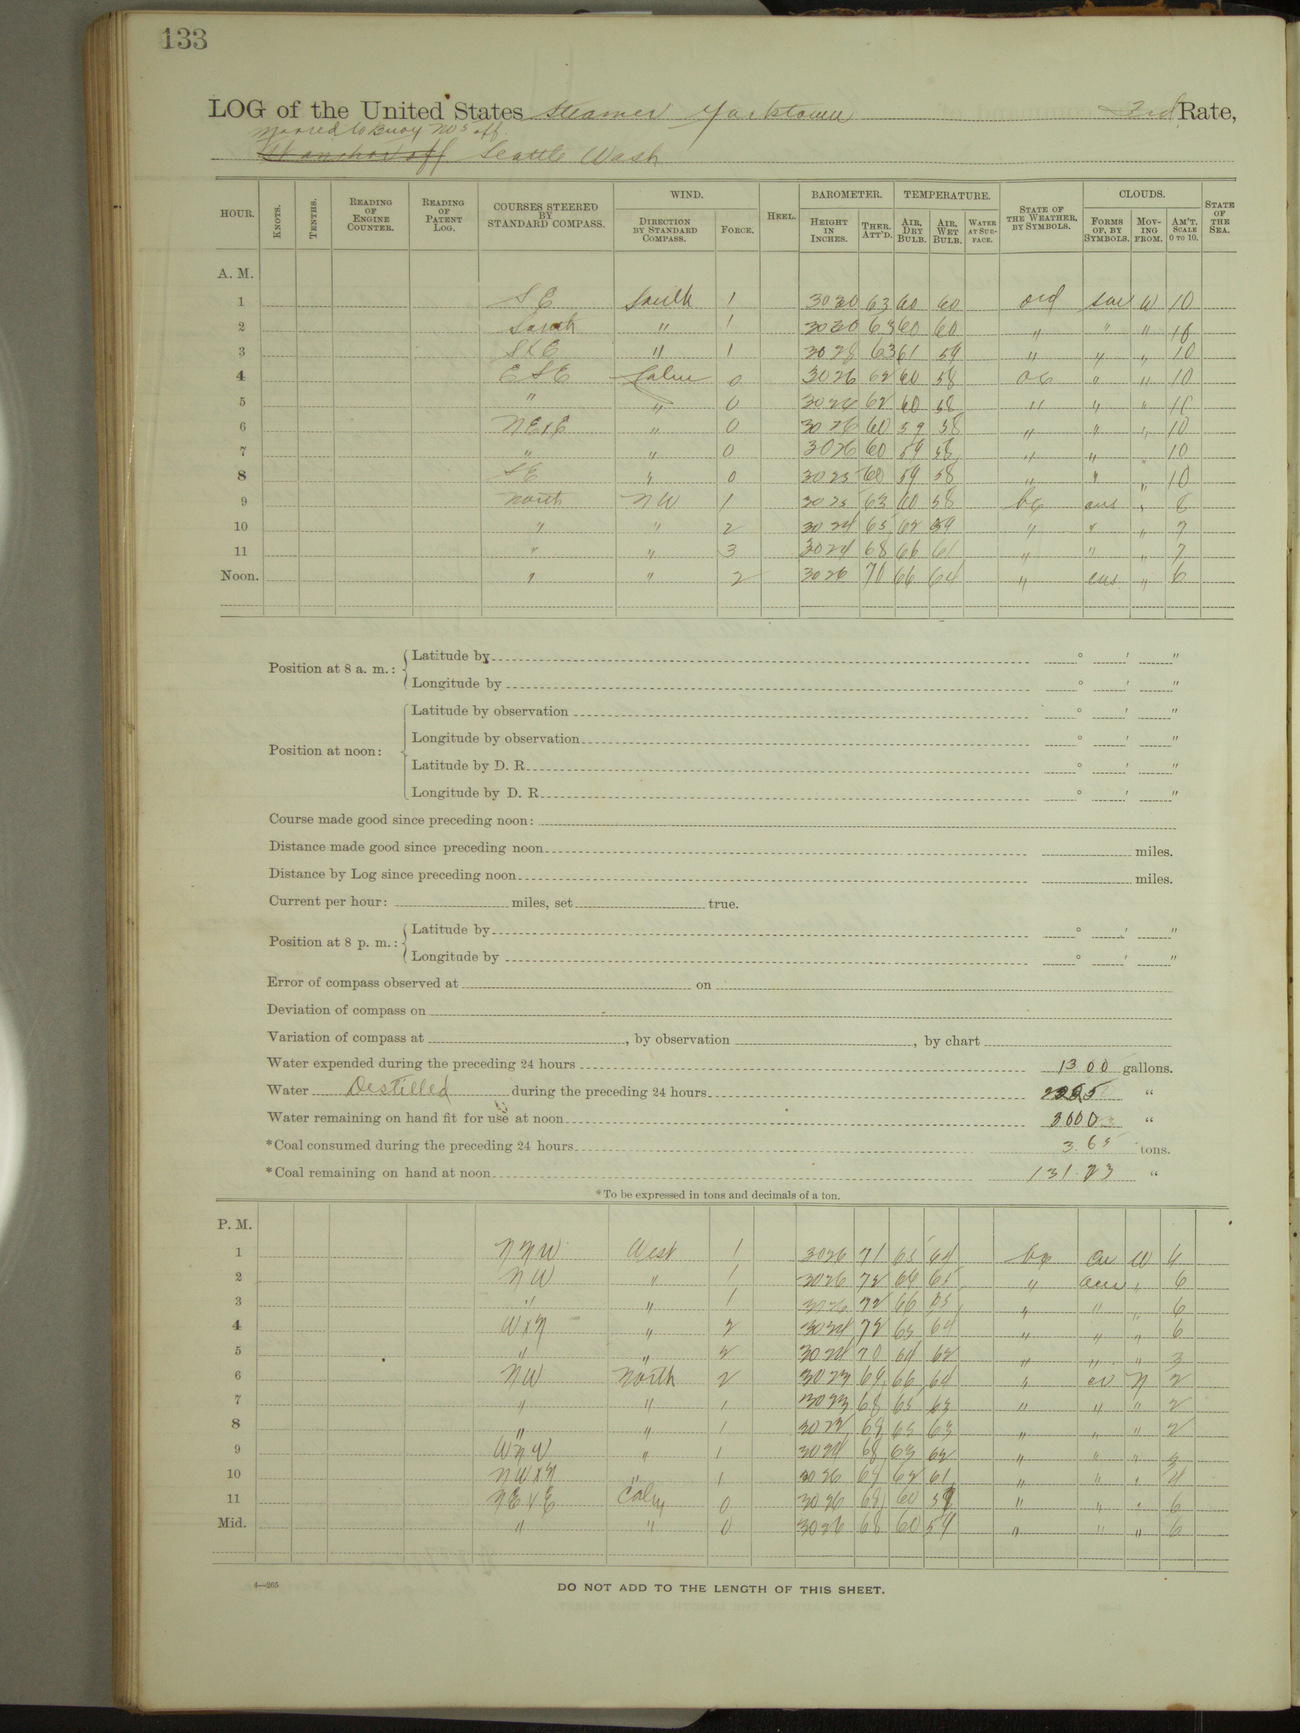 133
LOG of the United States Steamer Yorktown 3rd Rate,
Moored to Buoy No 3 off
At anchor off Seattle Wash
HOUR. KNOTS. TENTHS. READING OF ENGINE COUNTER. READING OF PATENT LOG. COURSES STEERED BY STANDARD COMPASS. WIND. DIRECTION BY STANDARD COMPASS. FORCE. HEEL. BAROMETER. HEIGHT IN INCHES. THER. ATT'D. TEMPERATURE. AIR, DRY BULB. AIR, WET BULB. WATER AT SURFACE. STATE OF THE WEATHER, BY SYMBOLS. CLOUDS. FORMS OF, BY SYMBOLS. MOVING FROM. AM'T. SCALE 0 TO 10. STATE OF THE SEA.
A. M.
1 SE South 1 3030 63 60 60 W 10
2 South " 1 3030 63 60 60 " " "
3 " 1 3028 63 61 59 " " " 10
4 ESE Calm 0 3026 62 60 58 oc " " 10
5 " " 0 3026 62 60 58 " " "
6 NExE " 0 3026 60 59 58 " " " 10
7 " " 0 3026 60 59 58 " " " 10
8 SE " 0 3025 60 59 58 " " " 10
9 North NW 1 3025 63 60 58 bc " 8
10 " " 2 3024 65 62 59 " " " 7
11 " " 3 3024 68 66 61 " " " 7
Noon. " " 2 3026 70 66 64 " " 6
Position at 8 a. m.: Latitude by ° ' "
Longitude by ° ' "
Position at noon: Latitude by observation ° ' "
Longitude by observation ° ' "
Latitude by D. R. ° ' "
Longitude by D. R. ° ' "
Course made good since preceding noon:
Distance made good since preceding noon miles.
Distance by Log since preceding noon miles.
Current per hour: miles, set true.
Position at 8 p. m.: Latitude by ° ' "
Longitude by ° ' "
Error of compass observed at on
Deviation of compass on
Variation of compass at , by observation , by chart
Water expended during the preceding 24 hours 1300 gallons.
Water Destilled during the preceding 24 hours "
Water remaining on hand fit for use at noon 3000 "
*Coal consumed during the preceding 24 hours 3.65 tons.
*Coal remaining on hand at noon 131.23 "
*To be expressed in tons and decimals of a ton.
P. M.
1 NNW West 1 3026 71 65 64 bc cu W
2 NW " 1 3026 72 66 65 " " 6
3 " " 1 3026 72 66 65 " " " 6
4 WxN " 2 3024 72 65 64 " " " 6
5 " " 2 3024 70 64 62 " " " 3
6 NW North 2 3023 69 66 64 " N 2
7 " " 1 3023 68 65 63 " " " 2
8 " " 1 3023 68 65 63 " " " 2
9 WNW " 1 3024 68 63 62 " " "
10 NWxN " 1 3026 68 62 61 " " " 4
11 NExE Calm 0 3026 68 60 58 " " " 6
Mid. " " 0 3026 68 60 59 " " " 6
4—265
DO NOT ADD TO THE LENGTH OF THIS SHEET.